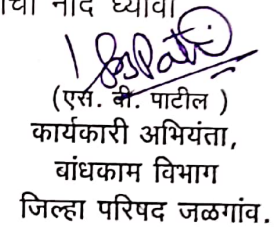 नोंद घ्यावी
(एस. बी. पाटील )
कार्यकारी अभियंता,
बांधकाम विभाग
जिल्हा परिषद जळगांव.